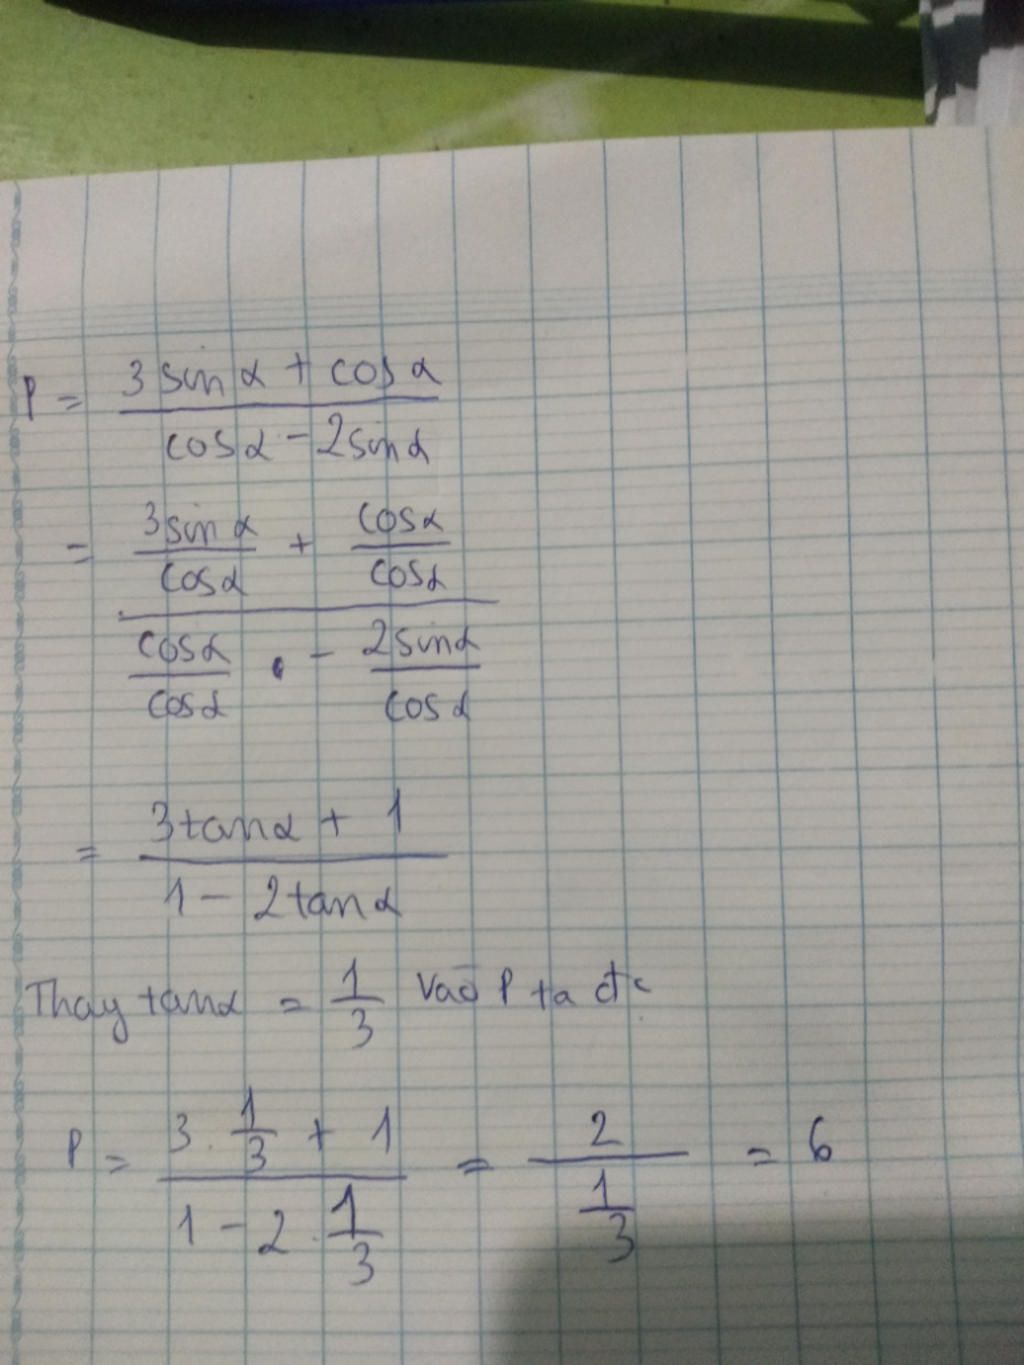 P = (3 sin α + cos α) / (cos α - 2 sin α)
= (3 sin α / cos α + cos α / cos α) / (cos α / cos α - 2 sin α / cos α)
= (3 tan α + 1) / (1 - 2 tan α)
Thay tan α = 1/3 vào P ta đc
P = (3 . 1/3 + 1) / (1 - 2 . 1/3) = 2 / (1/3) = 6